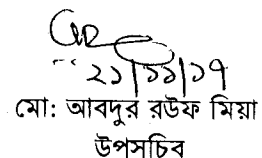 ২১/১১/১৭
মো: আবদুর রউফ মিয়া
উপসচিব